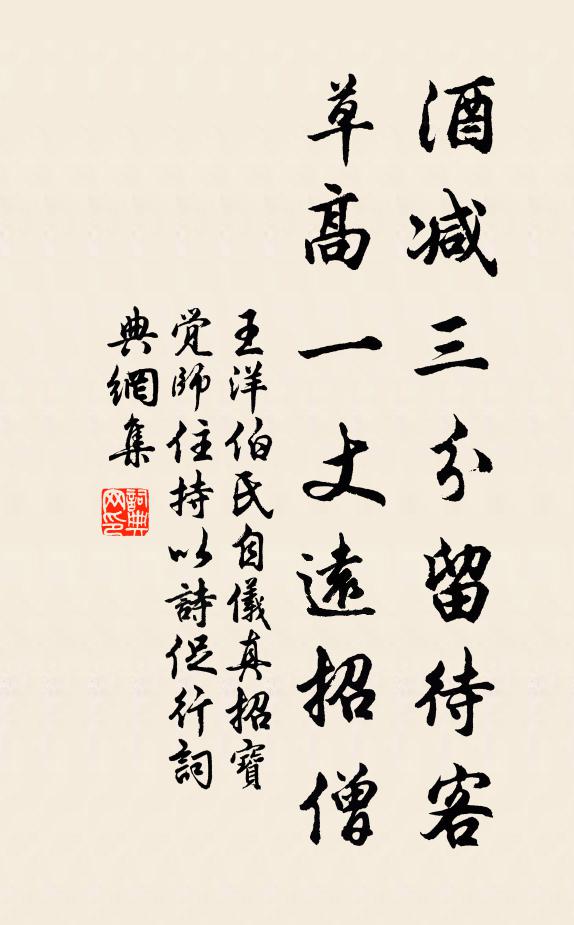 酒減三分留待客
草高一丈遠招僧
王洋伯氏自儀真招寶
覚師住持以詩促行詞
典網集
詞典
网印